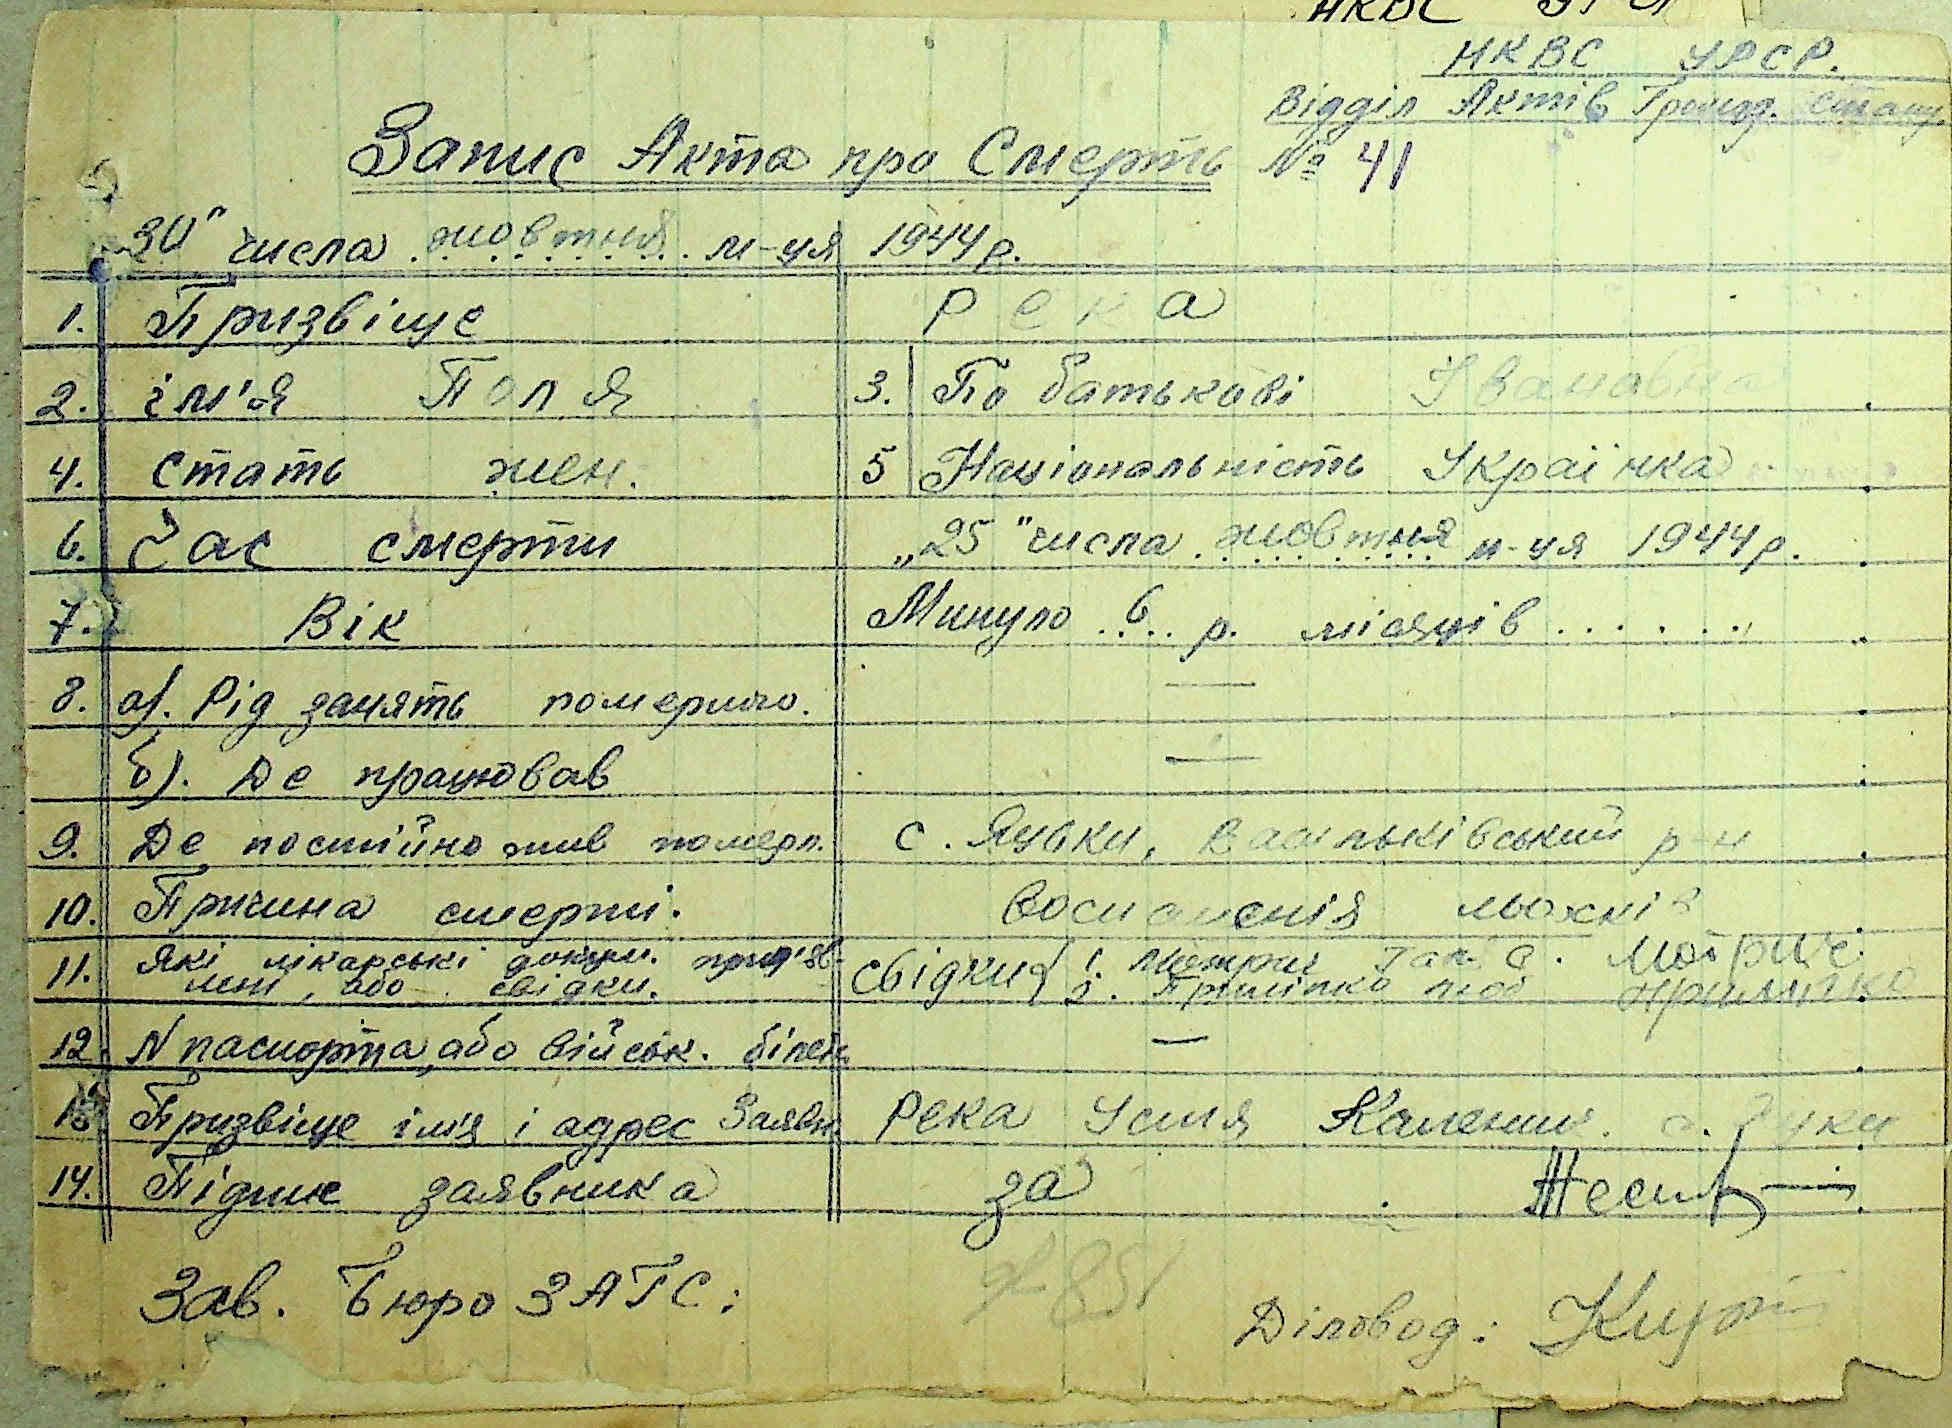 НКВС УРСР.
Відділ Актів Громад. Стану
Запис Акта про Смерть № 41
"30" числа жовтня м-ця 1944 р.
1. Призвіще Река
2. ім'я Поля 3. По батькові Івановна
4. Стать жен. 5 Національність Українка
6. Час смерти „25" числа жовтня м-ця 1944 р.
7. Вік Минуло 6 р. місяців
8. а). Рід занять померлого. —
б). Де працював —
9. Де постійно жив померл. с. Яувки, Васильківський р-н
10. Причина смерті. Воспаленія льохків
11. Які лікарські докум. пред'яв-
лені, або свідки. свідки {1.
2. Прилипко
12. N паспорта, або війсік. білет. —
13. Призвіще ім'я і адрес Заявн. Река Устя с.
14. Підпис заявника за
Зав. Бюро ЗАГС:
Діловод: